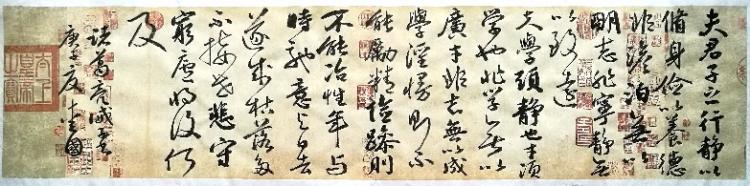 夫君子之行静以
脩身俭以養德
非澹泊無以
明志非寧静無
以致遠
夫學須静也才須
學也非學無以
廣才非志無以成
學淫慢則不
能勵精險躁則
不能冶性年与
時馳意与日去
遂成枯落多
不接世悲守
窮廬將復何
及
諸葛亮诫子
庚子
太上皇帝之寶